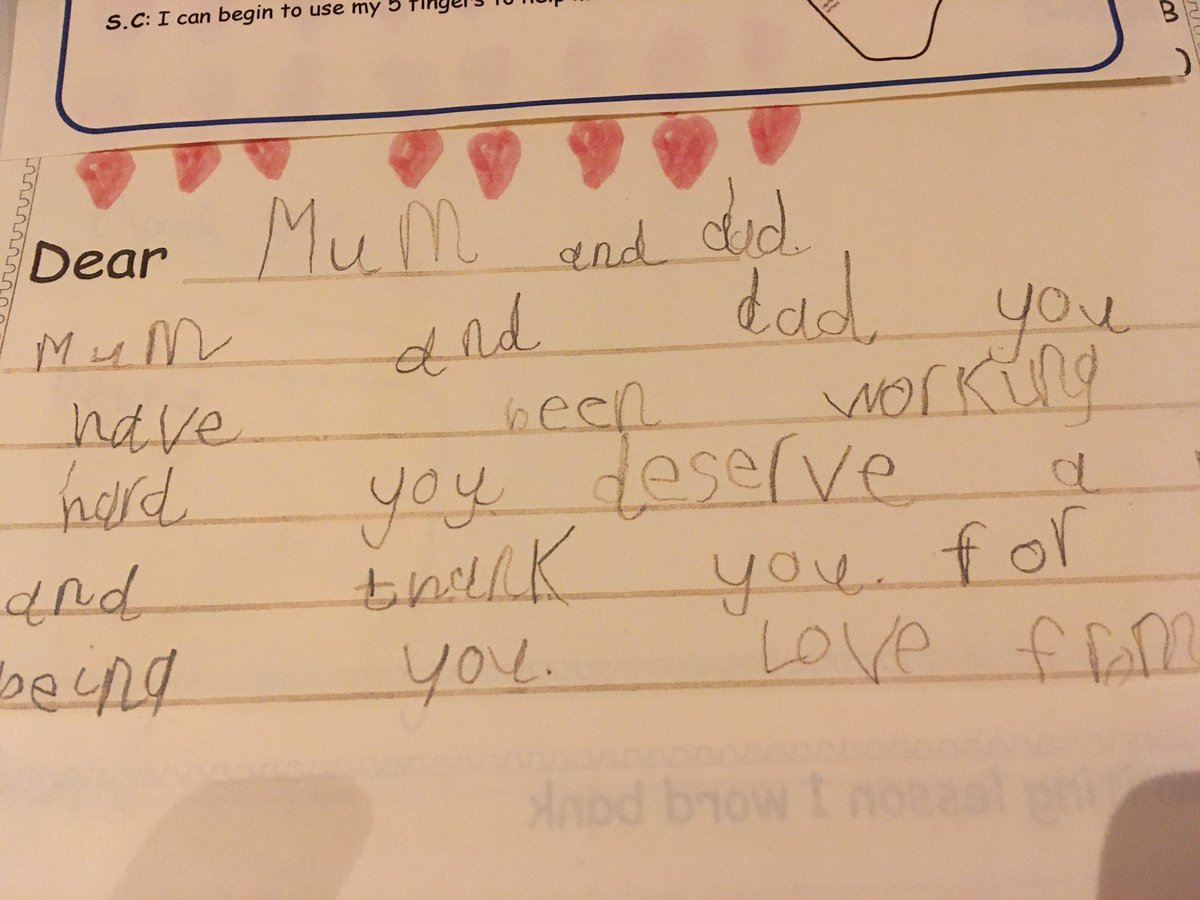 S.C: I can begin to use my 5 fingers to help
B
Dear Mum and dad.
Mum and dad you
have been working
hard you deserve a
and thank you. for
being you. Love from
lesson 1 word bank